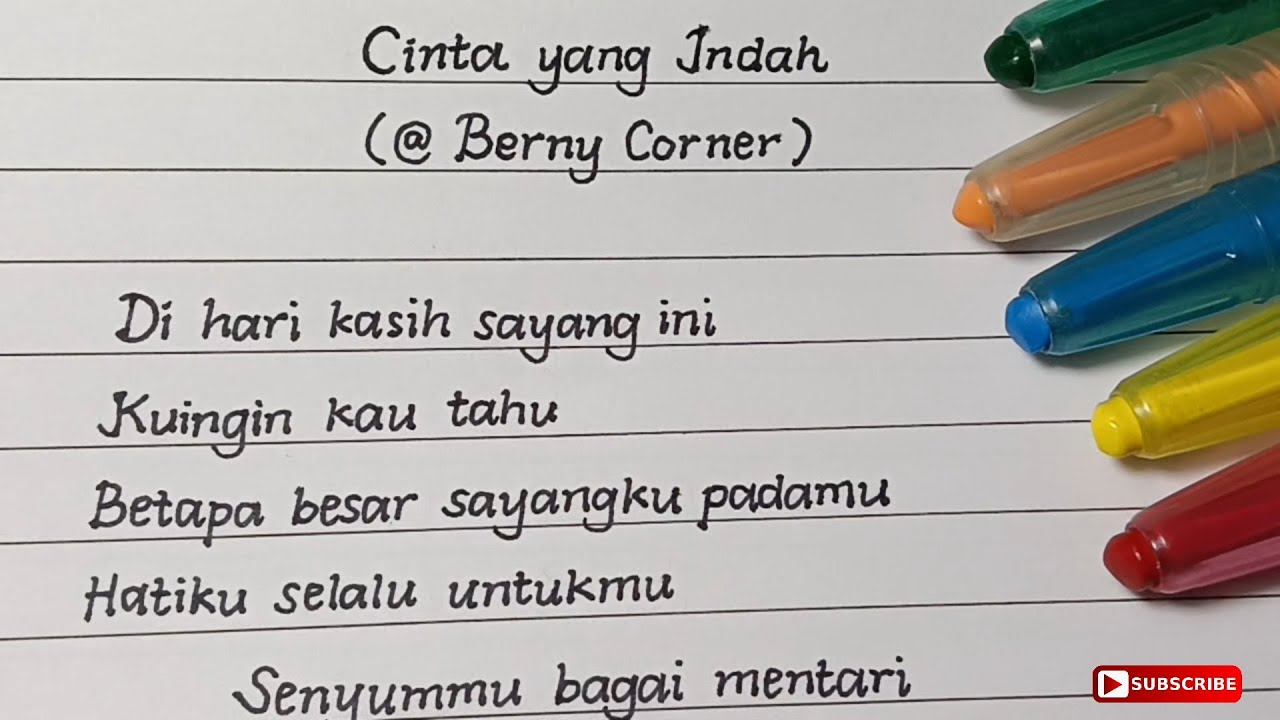 Cinta yang Indah
(@ Berny Corner)
Di hari kasih sayang ini
Kuingin kau tahu
Betapa besar sayangku padamu
Hatiku selalu untukmu
Senyummu bagai mentari
SUBSCRIBE